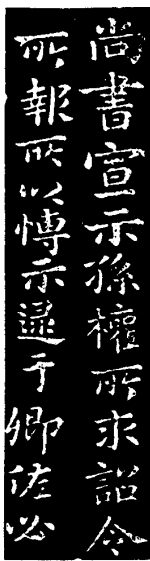 尚書宣示孫權所求詔令
所報所以博示逮于卿佐必